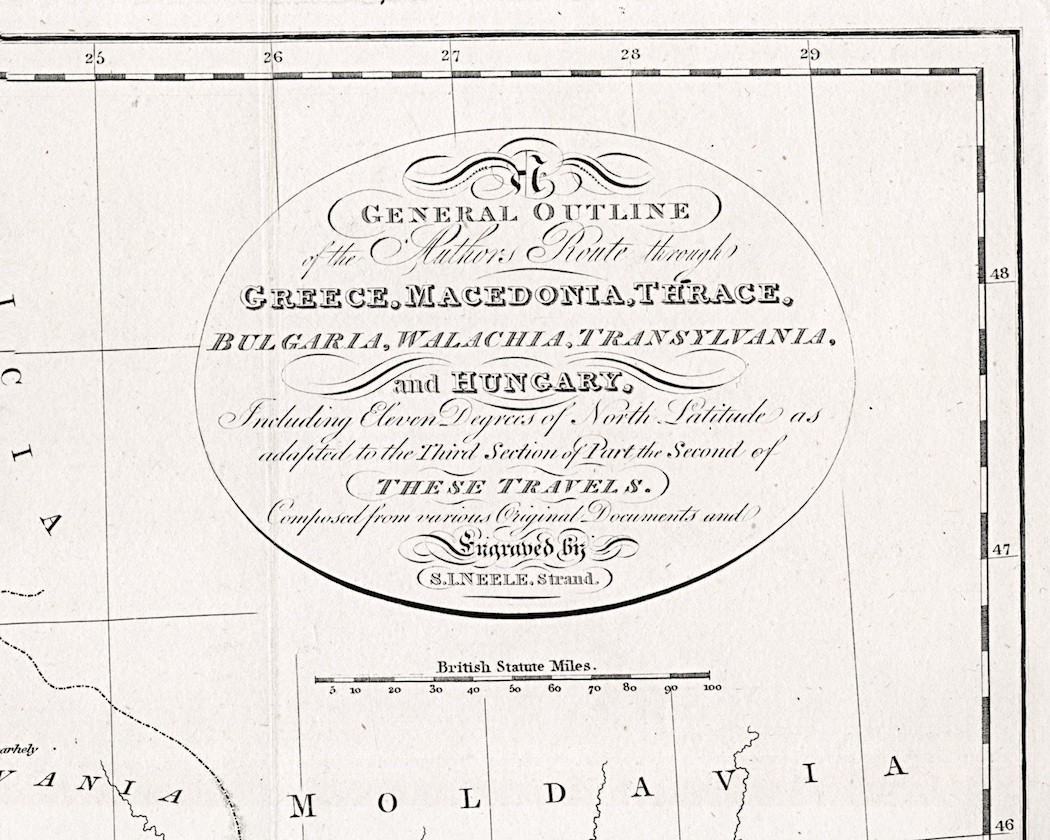 25 26 27 28 29
A
GENERAL OUTLINE
of the Authors Route through
GREECE, MACEDONIA, THRACE,
48
BULGARIA, WALACHIA, TRANSYLVANIA,
and HUNGARY,
Including Eleven Degrees of North Latitude as
adapted to the Third Section of Part the Second of
THESE TRAVELS.
Composed from various Original Documents and
Engraved by
47
S.I. NEELE. Strand.
British Statute Miles.
5 10 20 30 40 50 60 70 80 90 100
ICIA
arhely
VANIA
MOLDAVIA
46